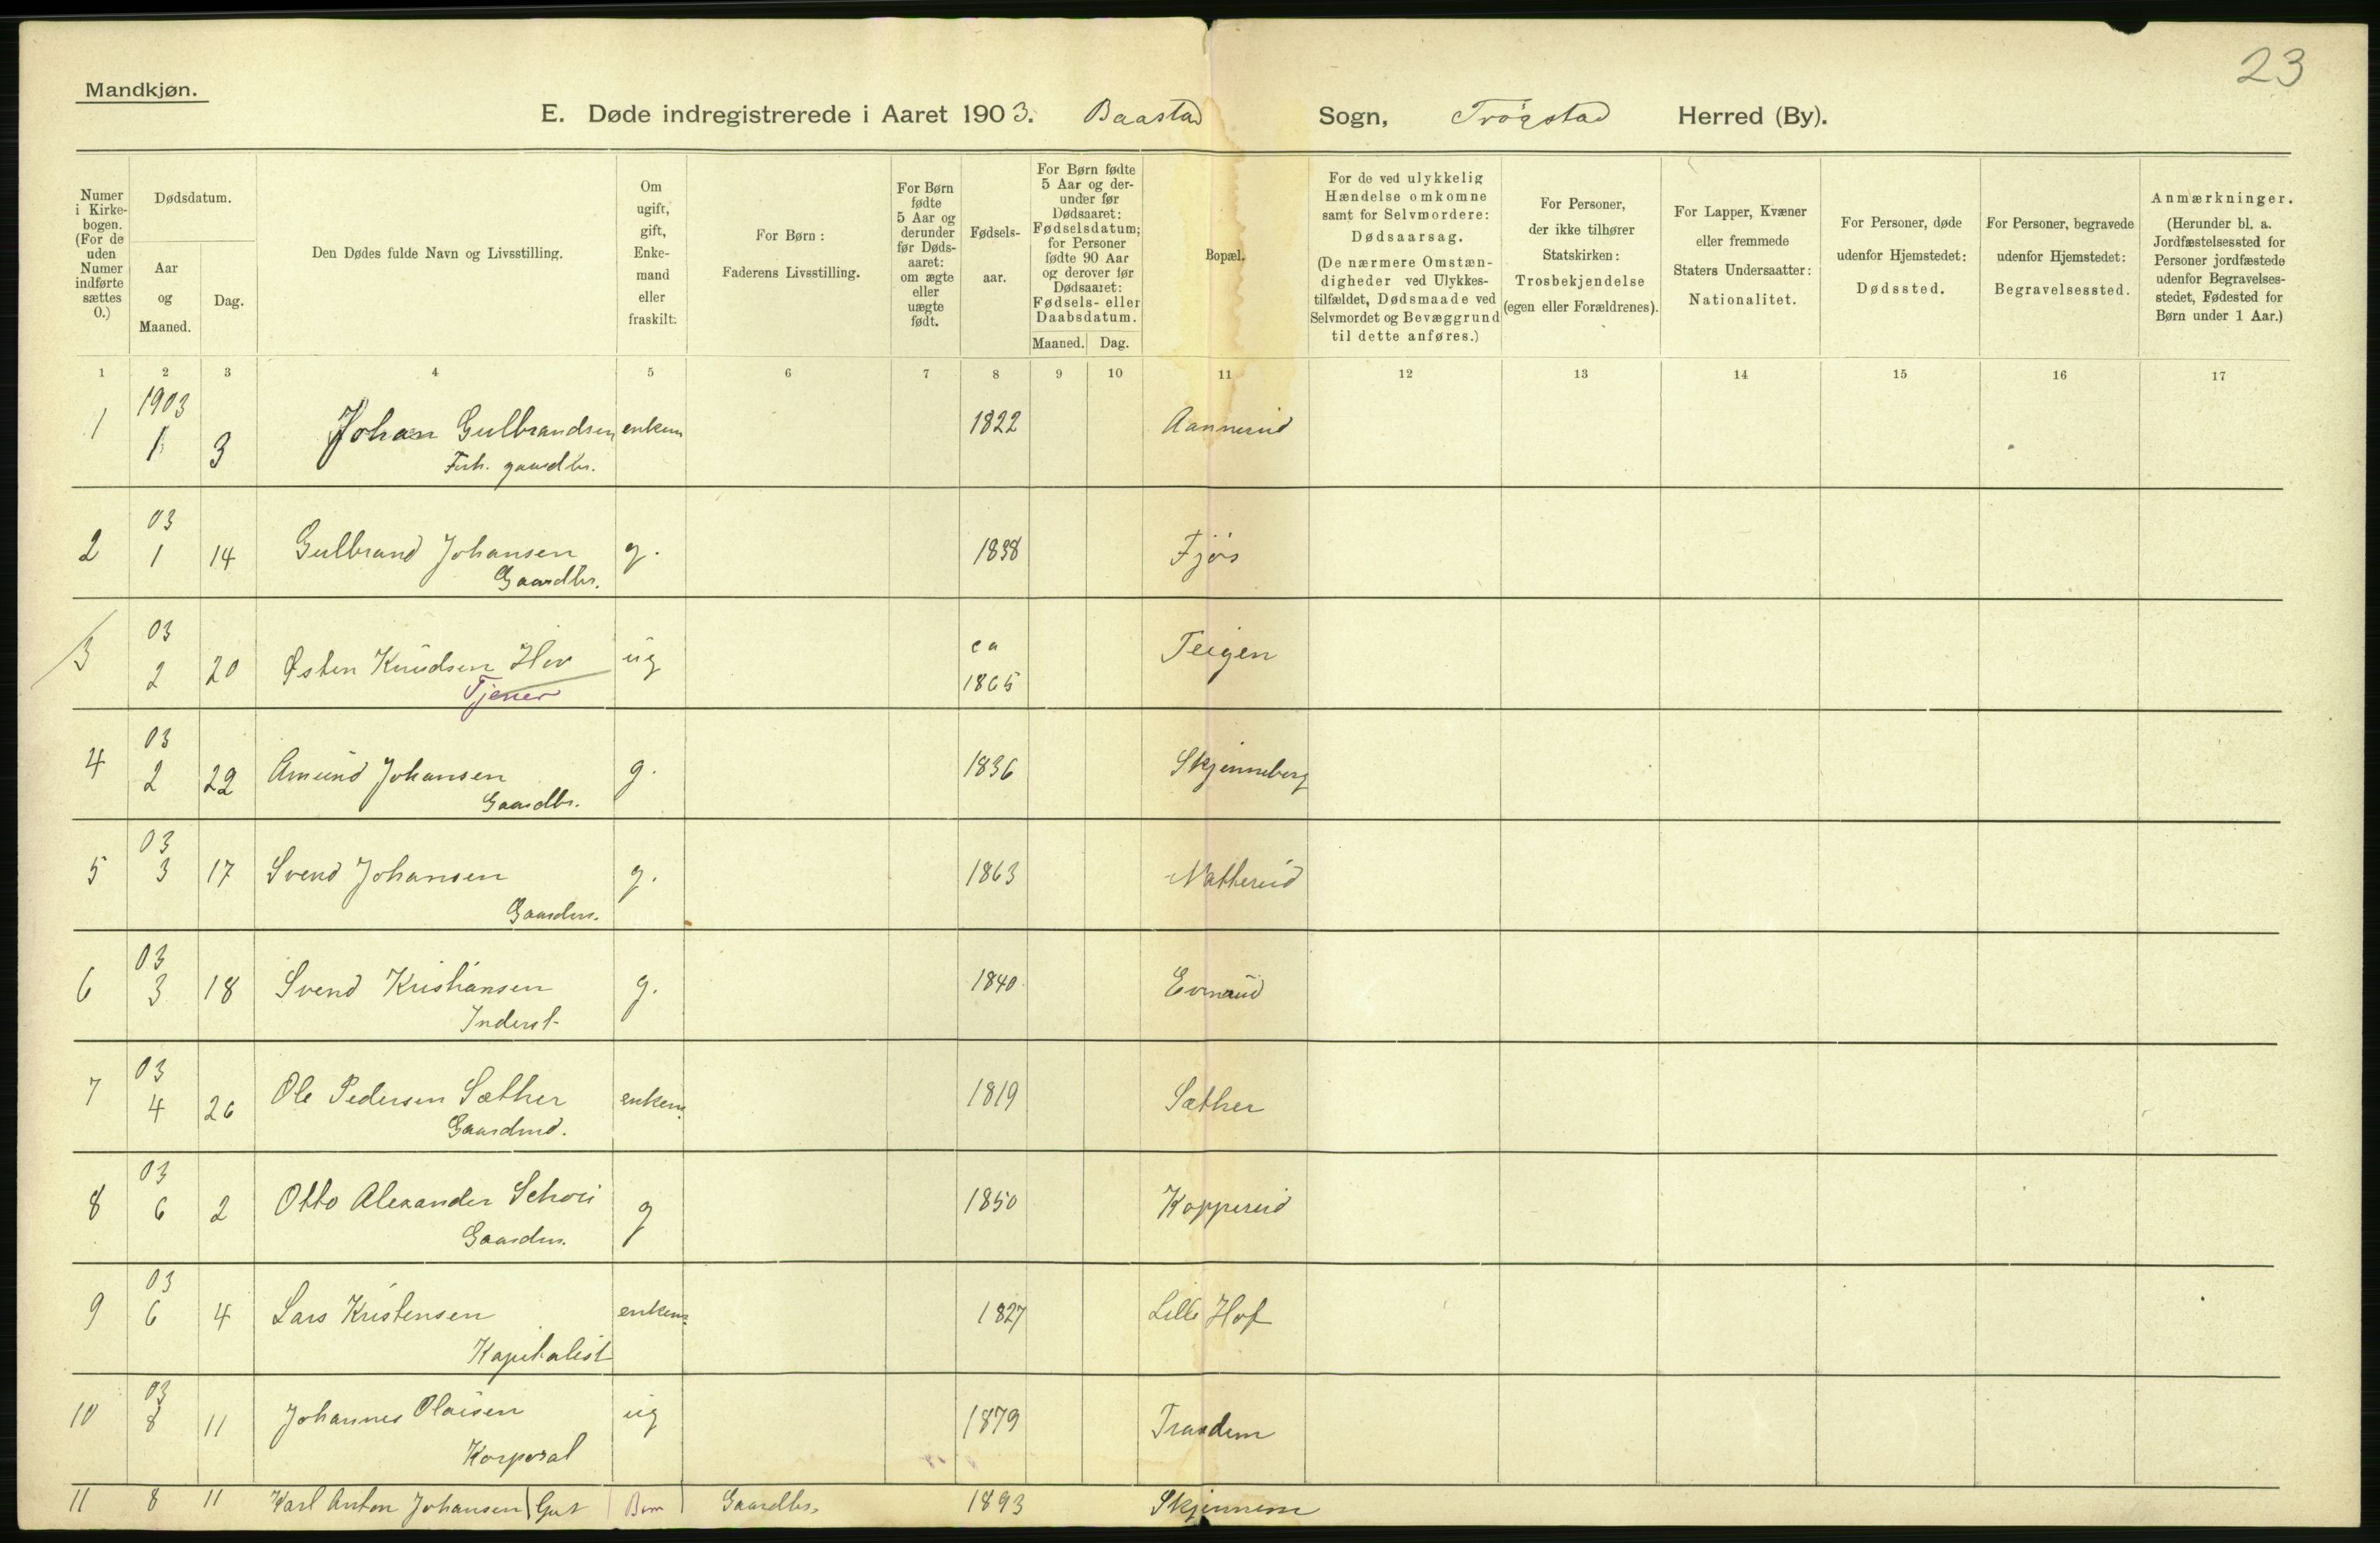 23
Mandkjøn.
E. Døde indregistrerede i Aaret 1903. Baastad Sogn, Trøgstad Herred (By).
Numer i Kirke-bogen. (For de uden Numer indførte sættes 0.)
Dødsdatum.
Aar og Maaned.
Dag.
Den Dødes fulde Navn og Livsstilling.
Om ugift, gift, Enke-mand eller fraskilt.
For Børn:
Faderens Livsstilling.
For Børn fødte 5 Aar og derunder før Døds-aaret: om ægte eller uægte født.
Fødsels-aar.
For Børn fødte 5 Aar og der-under før Dødsaaret: Fødselsdatum; for Personer fødte 90 Aar og derover før Dødsaaret: Fødsels- eller Daabsdatum.
Maaned. Dag.
Bopæl.
For de ved ulykkelig Hændelse omkomne samt for Selvmordere: Dødsaarsag. (De nærmere Omstæn-digheder ved Ulykkes-tilfældet, Dødsmaade ved Selvmordet og Bevæggrund til dette anføres.)
For Personer, der ikke tilhører Statskirken: Trosbekjendelse (egen eller Forældrenes).
For Lapper, Kvæner eller fremmede Staters Undersaatter: Nationalitet.
For Personer, døde udenfor Hjemstedet: Dødssted.
For Personer, begravede udenfor Hjemstedet: Begravelsessted.
Anmærkninger. (Herunder bl. a. Jordfæstelsessted for Personer jordfæstede udenfor Begravelses-stedet, Fødested for Børn under 1 Aar.)
1 2 3 4 5 6 7 8 9 10 11 12 13 14 15 16 17
1903
1 1 3 Johan Gulbrandsen enkem 1822 Aannerud
Forh. gaardbr.
03
2 1 14 Gulbrand Johansen g. 1838 Fjøs
Gaardbr.
03
3 2 20 Østen Knudsen Hov ug ca 1865 Teigen
Tjener
03
4 2 22 Amund Johansen g. 1836 Skjenneberg
Gaardbr.
03
5 3 17 Svend Johansen g. 1863
Gaardbr.
03
6 3 18 Svend Kristiansen g. 1840
Inderst
03
7 4 26 Ole Pedersen Sæther enkem. 1819 Sæther
Gaardmd.
03
8 6 2 Otto Alexander g 1850 Kopperud
Gaardbr.
03
9 6 4 Lars Kristensen enkem. 1827 Lille Hof
Kapitalist
03
10 8 11 Johannes Olaisen ug 1879
Korporal
11 8 11 Karl Anton Johansen Gut Barn Gaardbr. 1893